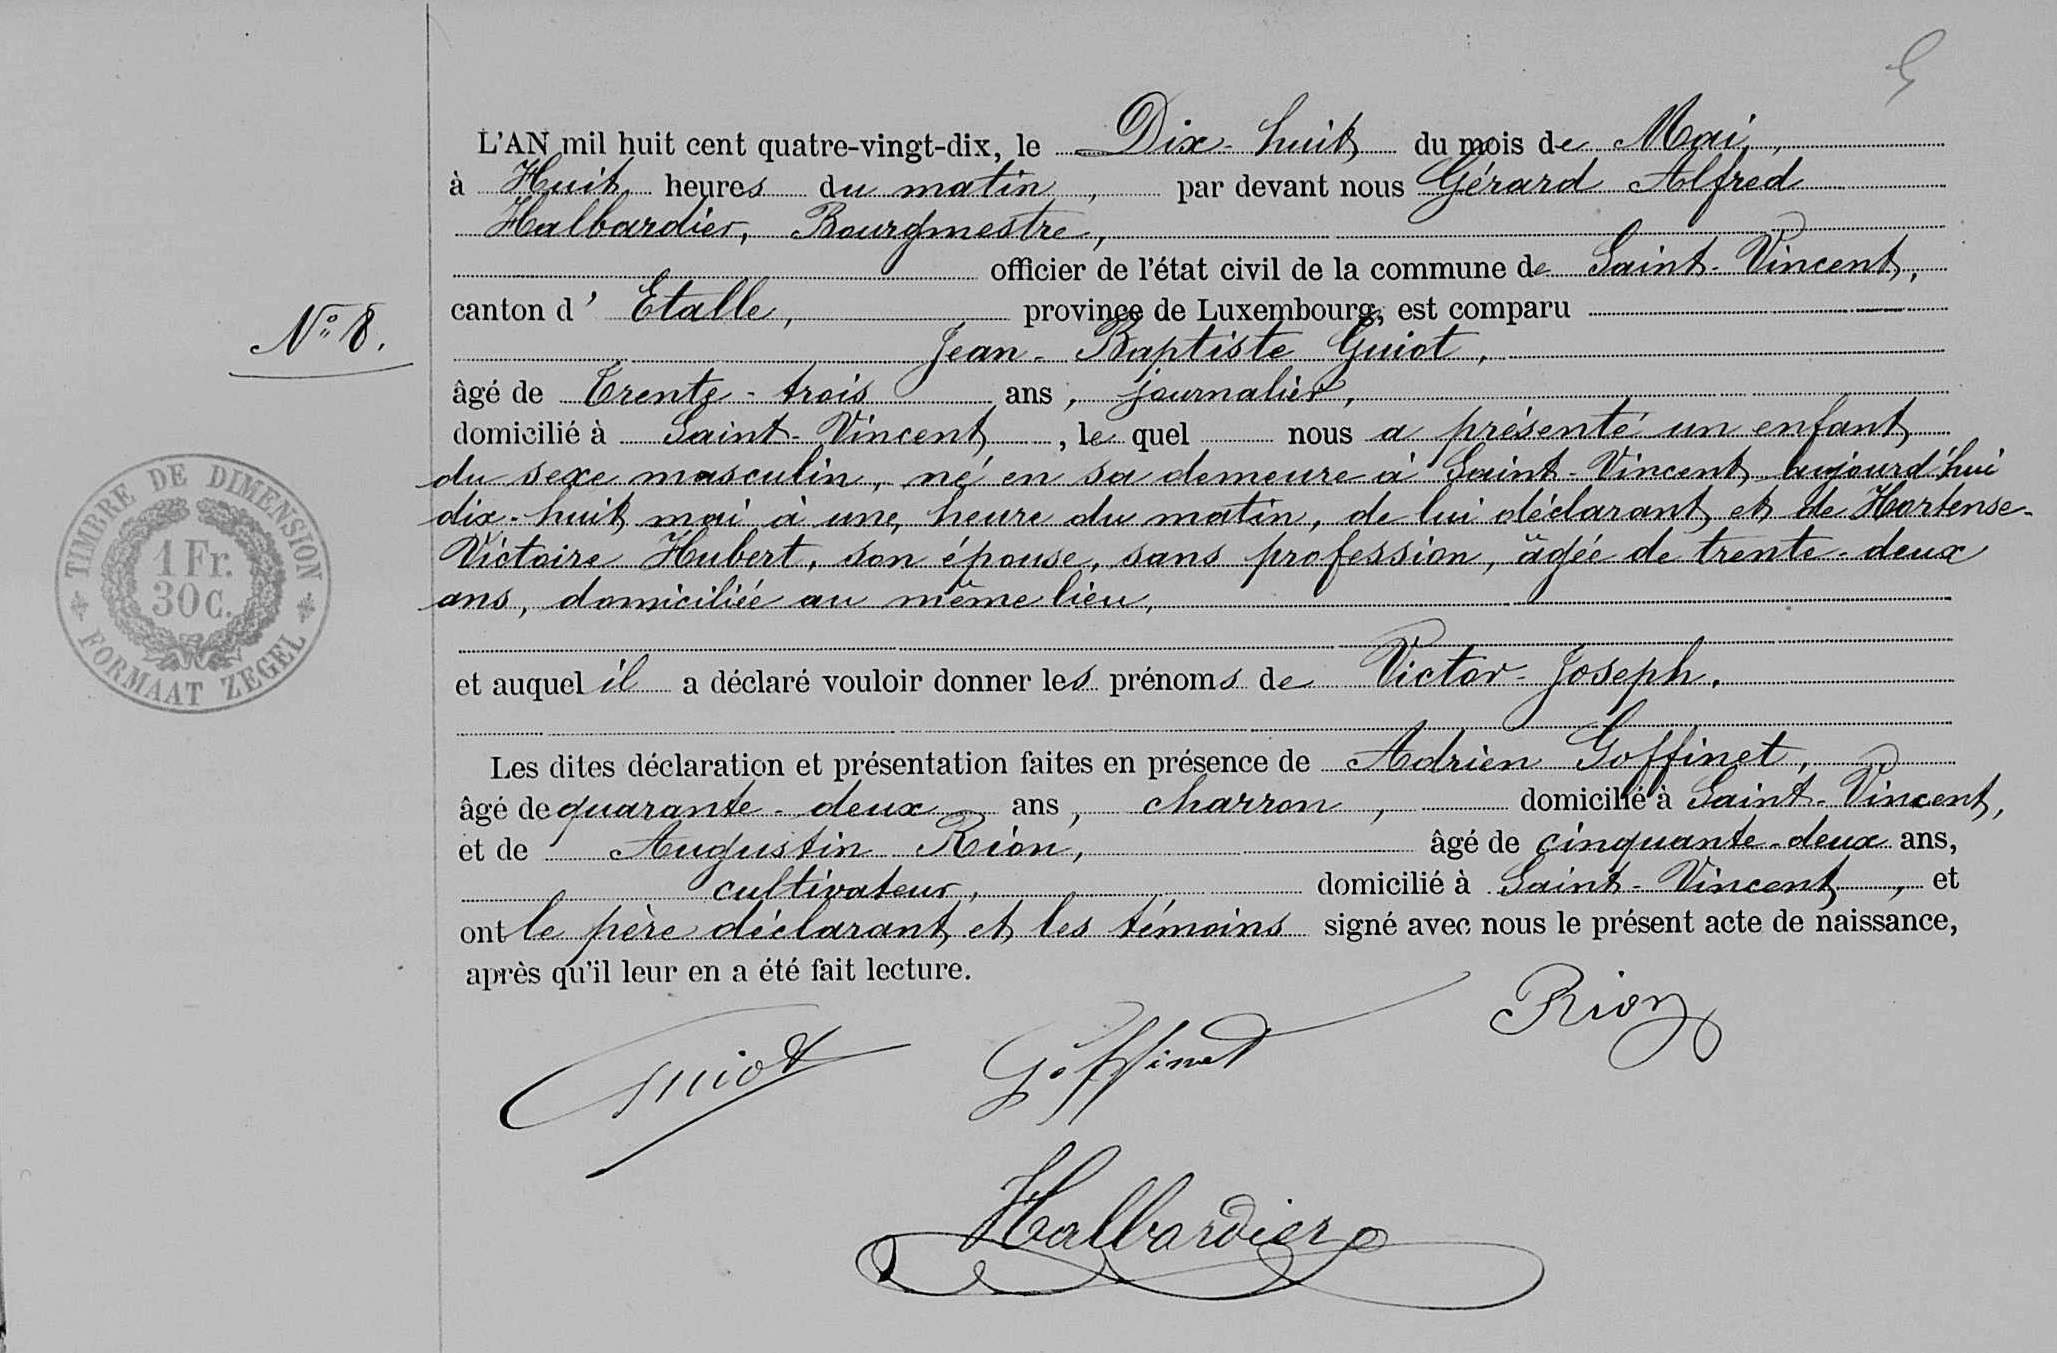 L'AN mil huit cent quatre-vingt-dix, le Dix-huit du mois de Mai,
à Huit heures du matin, par devant nous Gérard Alfred
Halbardier, Bourgmestre,
officier de l'état civil de la commune de Saint-Vincent,
canton d' Etalle, province de Luxembourg, est comparu
Jean-Baptiste Guiot,
N° 8.
âgé de Trente-trois ans, journalier,
domicilié à Saint-Vincent, le quel nous a présenté un enfant
du sexe masculin, né en sa demeure à Saint-Vincent, aujourd'hui
dix-huit mai à une heure du matin, de lui déclarant et de Hortense-
Victoire Hubert, son épouse, sans profession, âgée de trente-deux
ans, domiciliée au même lieu,
et auquel il a déclaré vouloir donner les prénoms de Victor-Joseph.
Les dites déclaration et présentation faites en présence de Adrien Goffinet,
âgé de quarante-deux ans, charron, domicilié à Saint-Vincent,
et de Augustin Rion, âgé de cinquante-deux ans,
cultivateur, domicilié à Saint-Vincent, et
ont le père déclarant et les témoins signé avec nous le présent acte de naissance,
après qu'il leur en a été fait lecture.
Guiot Goffinet Rion
Halbardier
TIMBRE DE DIMENSION
1 Fr.
30 C.
FORMAAT ZEGEL